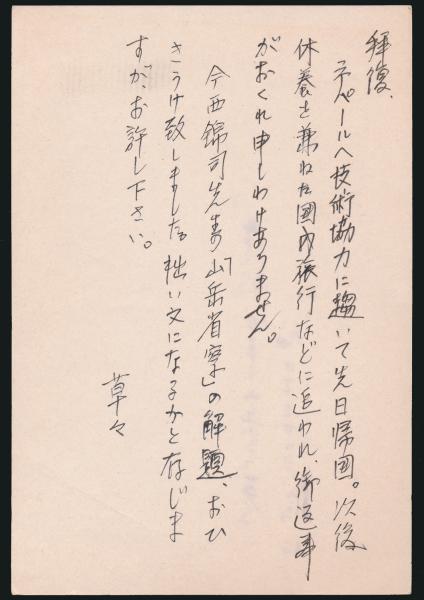 拝復、
ネパールへ技術協力に趣いて先日帰国。以後
休養を兼ねた國内旅行などに追われ、御返事
がおくれ申しわけありません。
今西錦司先生著「山岳省察」の解題、おひ
きうけ致しました。拙い文になるかと存じま
すが、お許し下さい。
草々